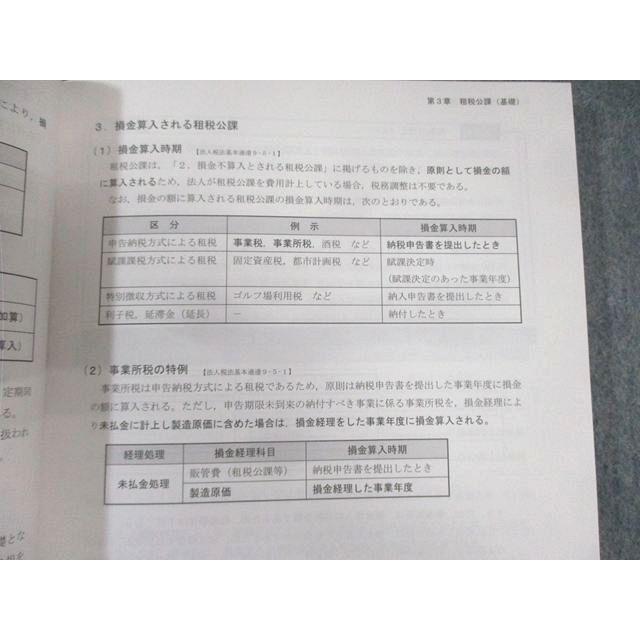 により，損
加算）
算入）
定期同
る。
扱われ
礎とな
第３章　租税公課（基礎）
３．損金算入される租税公課
（１）損金算入時期　【法人税法基本通達９-５-１】
租税公課は，「２．損金不算入とされる租税公課」に掲げるものを除き，原則として損金の額
に算入されるため，法人が租税公課を費用計上している場合，税務調整は不要である。
なお，損金の額に算入される租税公課の損金算入時期は，次のとおりである。
区　分　例　示　損金算入時期
申告納税方式による租税　事業税，事業所税，酒税　など　納税申告書を提出したとき
賦課課税方式による租税　固定資産税，都市計画税　など　賦課決定時
（賦課決定のあった事業年度）
特別徴収方式による租税　ゴルフ場利用税　など　納入申告書を提出したとき
利子税，延滞金（延長）　－　納付したとき
（２）事業所税の特例　【法人税法基本通達９-５-１】
事業所税は申告納税方式による租税であるため，原則は納税申告書を提出した事業年度に損金
の額に算入される。ただし，申告期限未到来の納付すべき事業に係る事業所税を，損金経理によ
り未払金に計上し製造原価に含めた場合は，損金経理をした事業年度に損金算入される。
経理処理　損金経理科目　損金算入時期
未払金処理　販管費（租税公課等）　納税申告書を提出したとき
製造原価　損金経理した事業年度